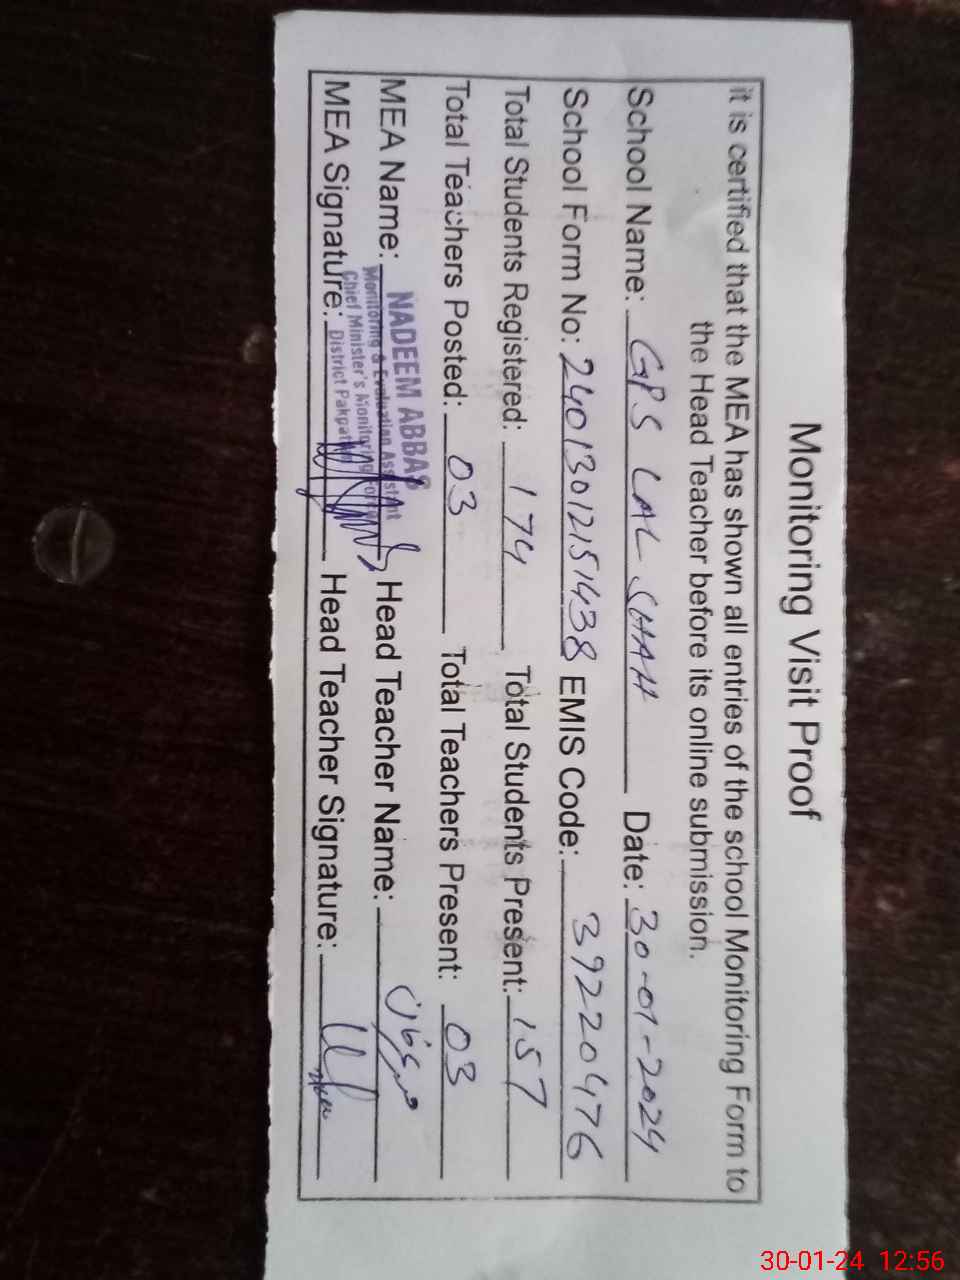 Monitoring Visit Proof
it is certified that the MEA has shown all entries of the school Monitoring Form to
the Head Teacher before its online submission.
School Name: GPS LAL SHAH Date: 30-01-2024
School Form No: 24013012151438 EMIS Code: 39220476
Total Students Registered: 174 Total Students Present: 157
Total Teachers Posted: 03 Total Teachers Present: 03
MEA Name: NADEEM ABBAS Head Teacher Name:
Monitoring & Evaluation Assistant
Chief Minister's Monitoring Force
District Pakpattan
MEA Signature: Head Teacher Signature:
30-01-24 12:56